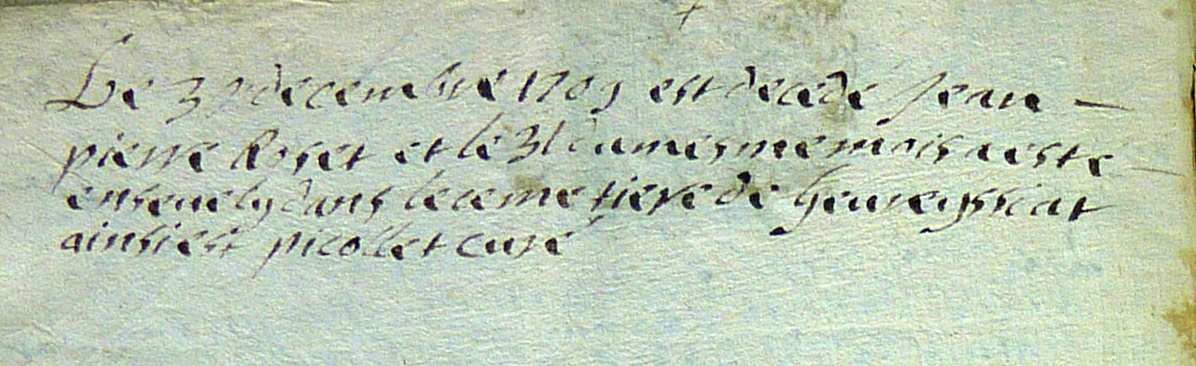 Le 3 decembre 1709 est decede Jean
pierre Roset et le 31 du mesme mois a esté
ensevely dans le cemetiere de
ainsi est picollet curé